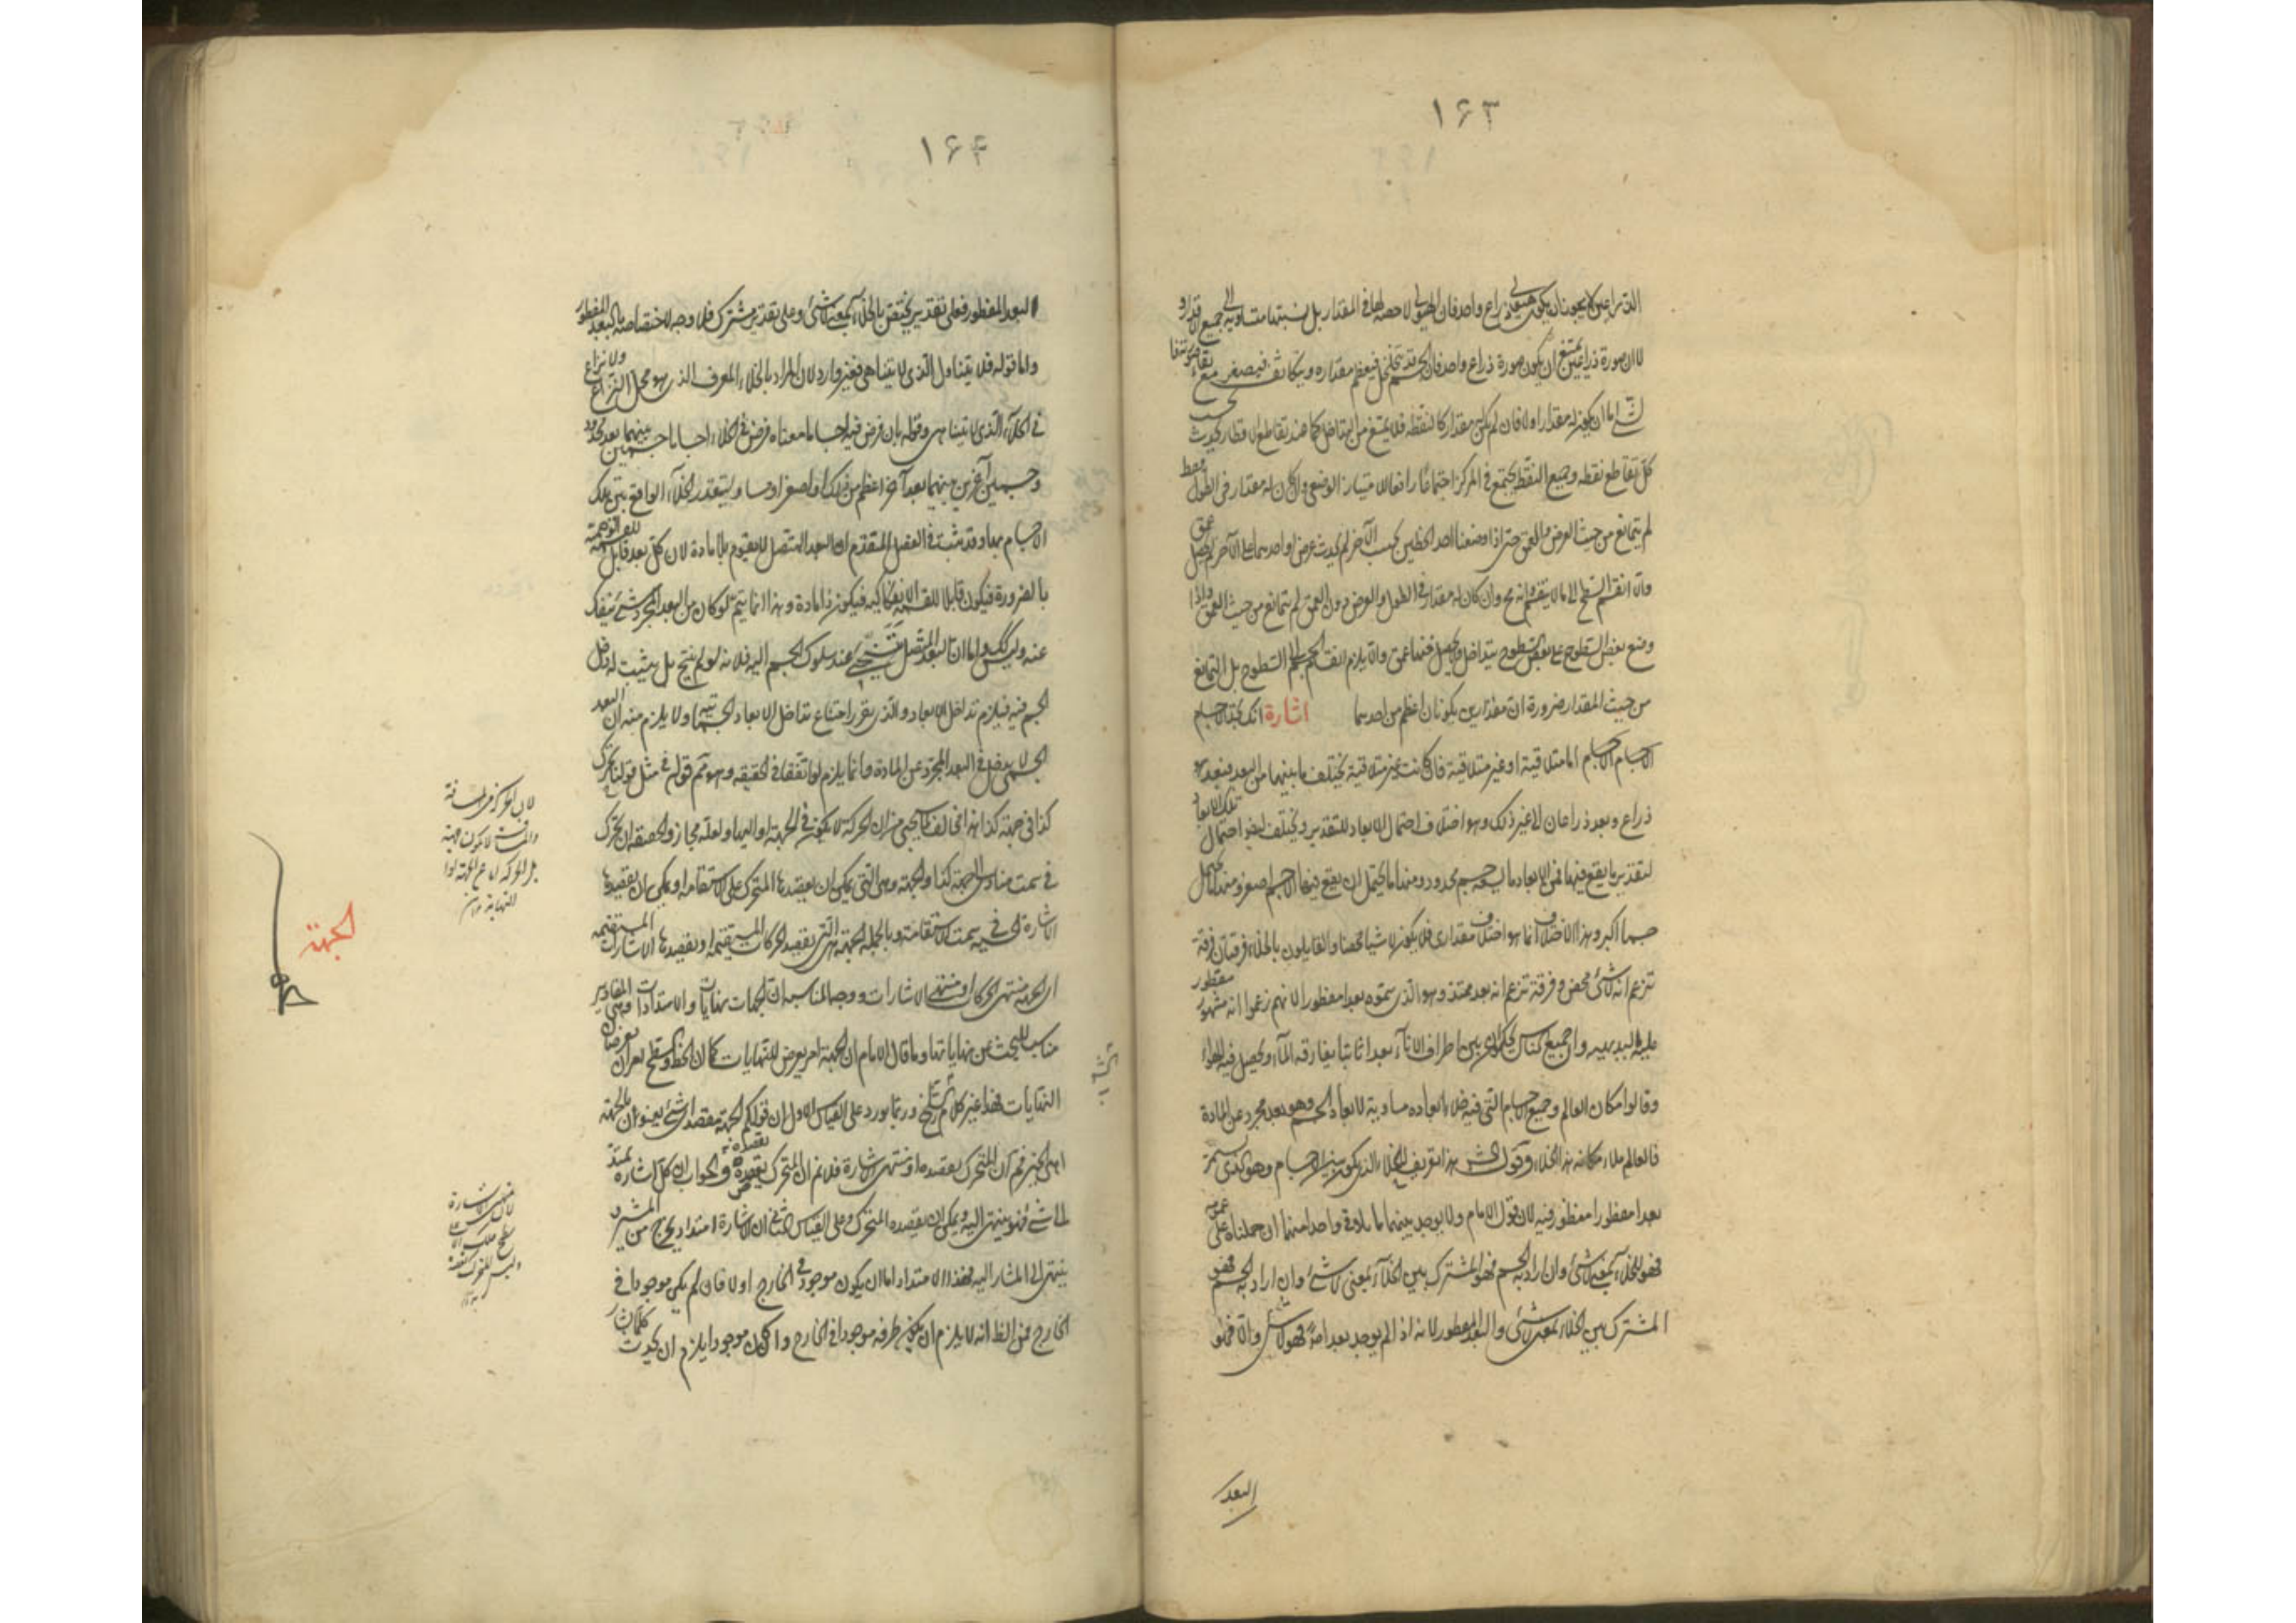 ١۶٣
الذراعين لا يجوز ان يكون هيولى ذراع واحد فان الهيولى لا حصة لها فى المقدار بل نسبتها متساوية الى جميع الاقدار و
لان صورة ذراعين يمتنع ان يكون صورة ذراع واحد فان الجسم قد يتخلخل فيعظم مقداره ويتكاثف فيصغر مع بقاء صورته
اما ان يكون له مقدار او لا فان لم يكن مقدار كالنقطة فلا يمتنع من التداخل كما عند تقاطع الاقطار بحيث
كل تقاطع نقطه وجميع النقط يجتمع فى المركز اجتماعا رافعا للامتياز الوضعى وان كان له مقدار فى الطول فقط
لم يتمانع من حيث العرض والعمق حتى اذا وضعنا احد الخطين بجنب الآخر لم يحدث عرض او احدهما على الآخر لم يحصل عمق
والا انقسم السطح الى ما لا ينقسم وانه مح وان كان له مقدار فى الطول والعرض دون العمق لم يتمانع من حيث العمق واذا
وضع بعض السطوح على بعض السطوح يتداخل ولا يحصل فيها عمق والا يلزم انقسام الجسم الى السطوح بل التمانع
من حيث المقدار ضرورة ان مقدارين يكونان اعظم من احدهما اشارة انك تجد الاجسام
الاجسام الاجسام اما متلاقية او غير متلاقية فان كانت غير متلاقية يختلف ما بينهما من البعد فبعد
ذراع وبعد ذراعان لا غير ذلك وهو اختلاف احتمال الابعاد للتقدير ويختلف ايضا احتمال تلك الابعاد
لتقدير ما يقع فيها فمن الابعاد ما يسعه جسم محدود ومنها ما يحتمل ان يقع فيها الاجسم اصغر ومنها ما يحتمل
جسما اكبر وهذا الاختلاف انما هو اختلاف مقدارى فلا يكون لا شيئا محضا والقايلون بالخلاء فرقتان فرقة
تزعم انه لا شئ محض وفرقة تزعم انه بعد ممتد وهو الذى سموه بعدا مفطورا لانهم زعموا انه مشهور مفطور
عليه البديهيه وان جميع الناس يحكمون ان بين اطراف الاناء بعدا ثابتا يفارقه الماء ويحصل فيه الهواء
وقالوا مكان العالم وجميع الاجسام التى فيه خلاء ابعاده مساوية لابعاد الجسم وهو بعد مجرد عن المادة
فالعالم ملاء مكانه هذا الخلاء وقول الش هذا تعريف الخلاء الذى يكون بين الاجسام وهو الذى يسمى
بعدا مفطورا منظور فيه لان قول الامام ولا يوجد بينهما ما يلاقى واحدا منهما ان حملناه على عمومه
فهو الخلاء بمعنى لا شئ وان اراد به الجسم فهو المشترك بين الخلاء بمعنى لا شئ وان اراد به الجسم فهو
المشترك بين الخلاء بمعنى لا شئ والبعد المفطور لانه اذا لم يوجد بعد اصلا فهو لا شئ والا فهو
البعد
١۶۴
البعد المفطور فعلى تقدير يختص بالخلاء بمعنى لا شئ وعلى تقدير مشترك فلا وجه لاختصاصه بالبعد المفطور
واما قوله فلا يتناول الذى لا يتناهى فغير وارد لان المراد بالخلاء المعرف الذى هو محل النزاع ولا نزاع
فى الخلاء الذى لا يتناهى وقوله بان فرض فيه اجساما معناه فرض فى الخلاء اجساما جسمين بينهما بعد محدود
وجسمين آخرين بينهما بعد آخر اعظم من ذلك او اصغر او مساو ليتقدر الخلاء الواقع بين تلك
الاجسام بها وقد ثبت فى الفصل المتقدم ان البعد المتصل لا يقوم بلا مادة لان كل بعد قابل للقسمة الوهمية
بالضرورة فيكون قابلا للقسمة الانفكاكيه فيكون ذا مادة وهذا انما يتم لو كان من البعد المجرد شئ ينفك
عنه وليس كذلك واما ان البعد المتصل يتنحى عند سلوك الجسم اليه فلانه لو لم يتنح بل يثبت له دخل
الجسم فيه فيلزم تداخل الابعاد والذى يقرر امتناع تداخل الابعاد الجسمانيه ولا يلزم منه ان البعد
الجسمى لا يدخل فى البعد المجرد عن المادة وانما يلزم لو اتفقا فى الحقيقة وهو مم قوله فى مثل قولنا تحرك
كذا فى جهة كذا هذا مخالف لما يجئ من ان الحركة لا يكون فى الجهة او اليها ولعله مجاز والحقيقه ان يتحرك
فى سمت متادى الى جهة كذا والجهة وهى التى يمكن ان يقصدها المتحرك على الاستقامة او يمكن ان يقصدها
الاشارة الحسيه فى سمت الاستقامة وبالجملة الجهة هى التى يقصد الحركات المستقيمة او يقصدها الاشارات المستقيمه
اى الجهة منتهى الحركات او منتهى الاشارات ووجه المناسبة ان الجهات نهايات والامتدادات وهى المقادير
مناسب للبحث عن نهاياتها وما قال الامام ان الجهة امر يعرض للنهايات كما ان الخط والسطح يعرضان
النهايات فهذا غير كلام الشيخ وربما يورد على القياس الاول ان قولكم الجهة مقصد اى شئ يعنون بالجهة
اهى الحيز فمم ان المتحرك يقصده او منتهى الاشارة فلانم ان المتحرك يقصده والجواب ان كل اشارة تمتد
الى شئ فهو ينتهى اليه ويمكن ان يقصده المتحرك وعلى القياس الثانى ان الاشارة امتداد يخرج من المشير و
ينتهى الى المشار اليه فهذا الامتداد اما ان يكون موجودا فى الخارج او لا فان لم يكن موجودا فى
الخارج فمن الظ انه لا يلزم ان يكون طرفه موجودا فى الخارج وان كان موجودا يلزم ان يحدث
الجهة